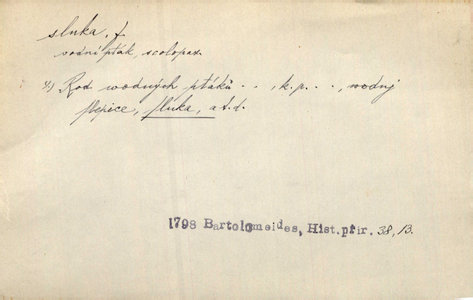 slnka, f.
vodní pták, scolopax.
4) Rod wodných ptáků . . , k. p. . . , wodný
slepice, slnka, a t. d.
1798 Bartolomeides, Hist.přir. 38, B.